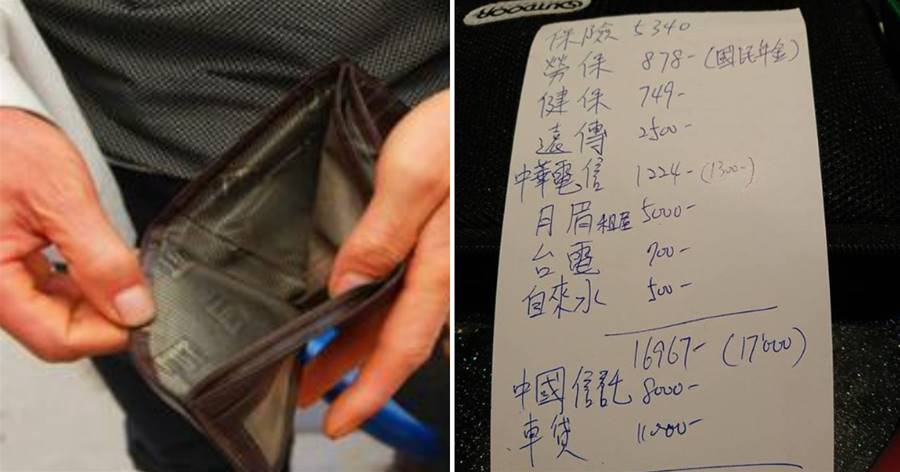 OUTDOOR
保險 5340
勞保 878-(國民年金)
健保 749-
遠傳 2500-
中華電信 1224-(1300-)
月眉租屋 5000-
台電 700-
自來水 500-
16967-(17000)
中國信託 8000-
車貸 11000-